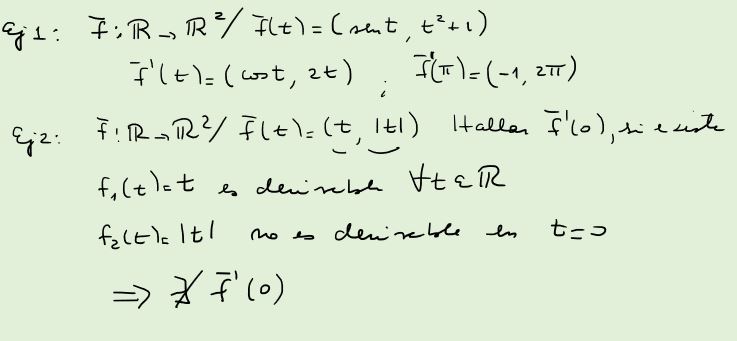 Ej 1: f̄: ℝ → ℝ² / f̄(t) = (sent, t²+1)
f̄'(t) = (cost, 2t) ; f̄'(π) = (-1, 2π)
Ej 2: f̄: ℝ → ℝ² / f̄(t) = (t, |t|) Hallar f̄'(0), si existe
f₁(t) = t es derivable ∀t ∈ ℝ
f₂(t) = |t| no es derivable en t=0
⇒ ∄ f̄'(0)